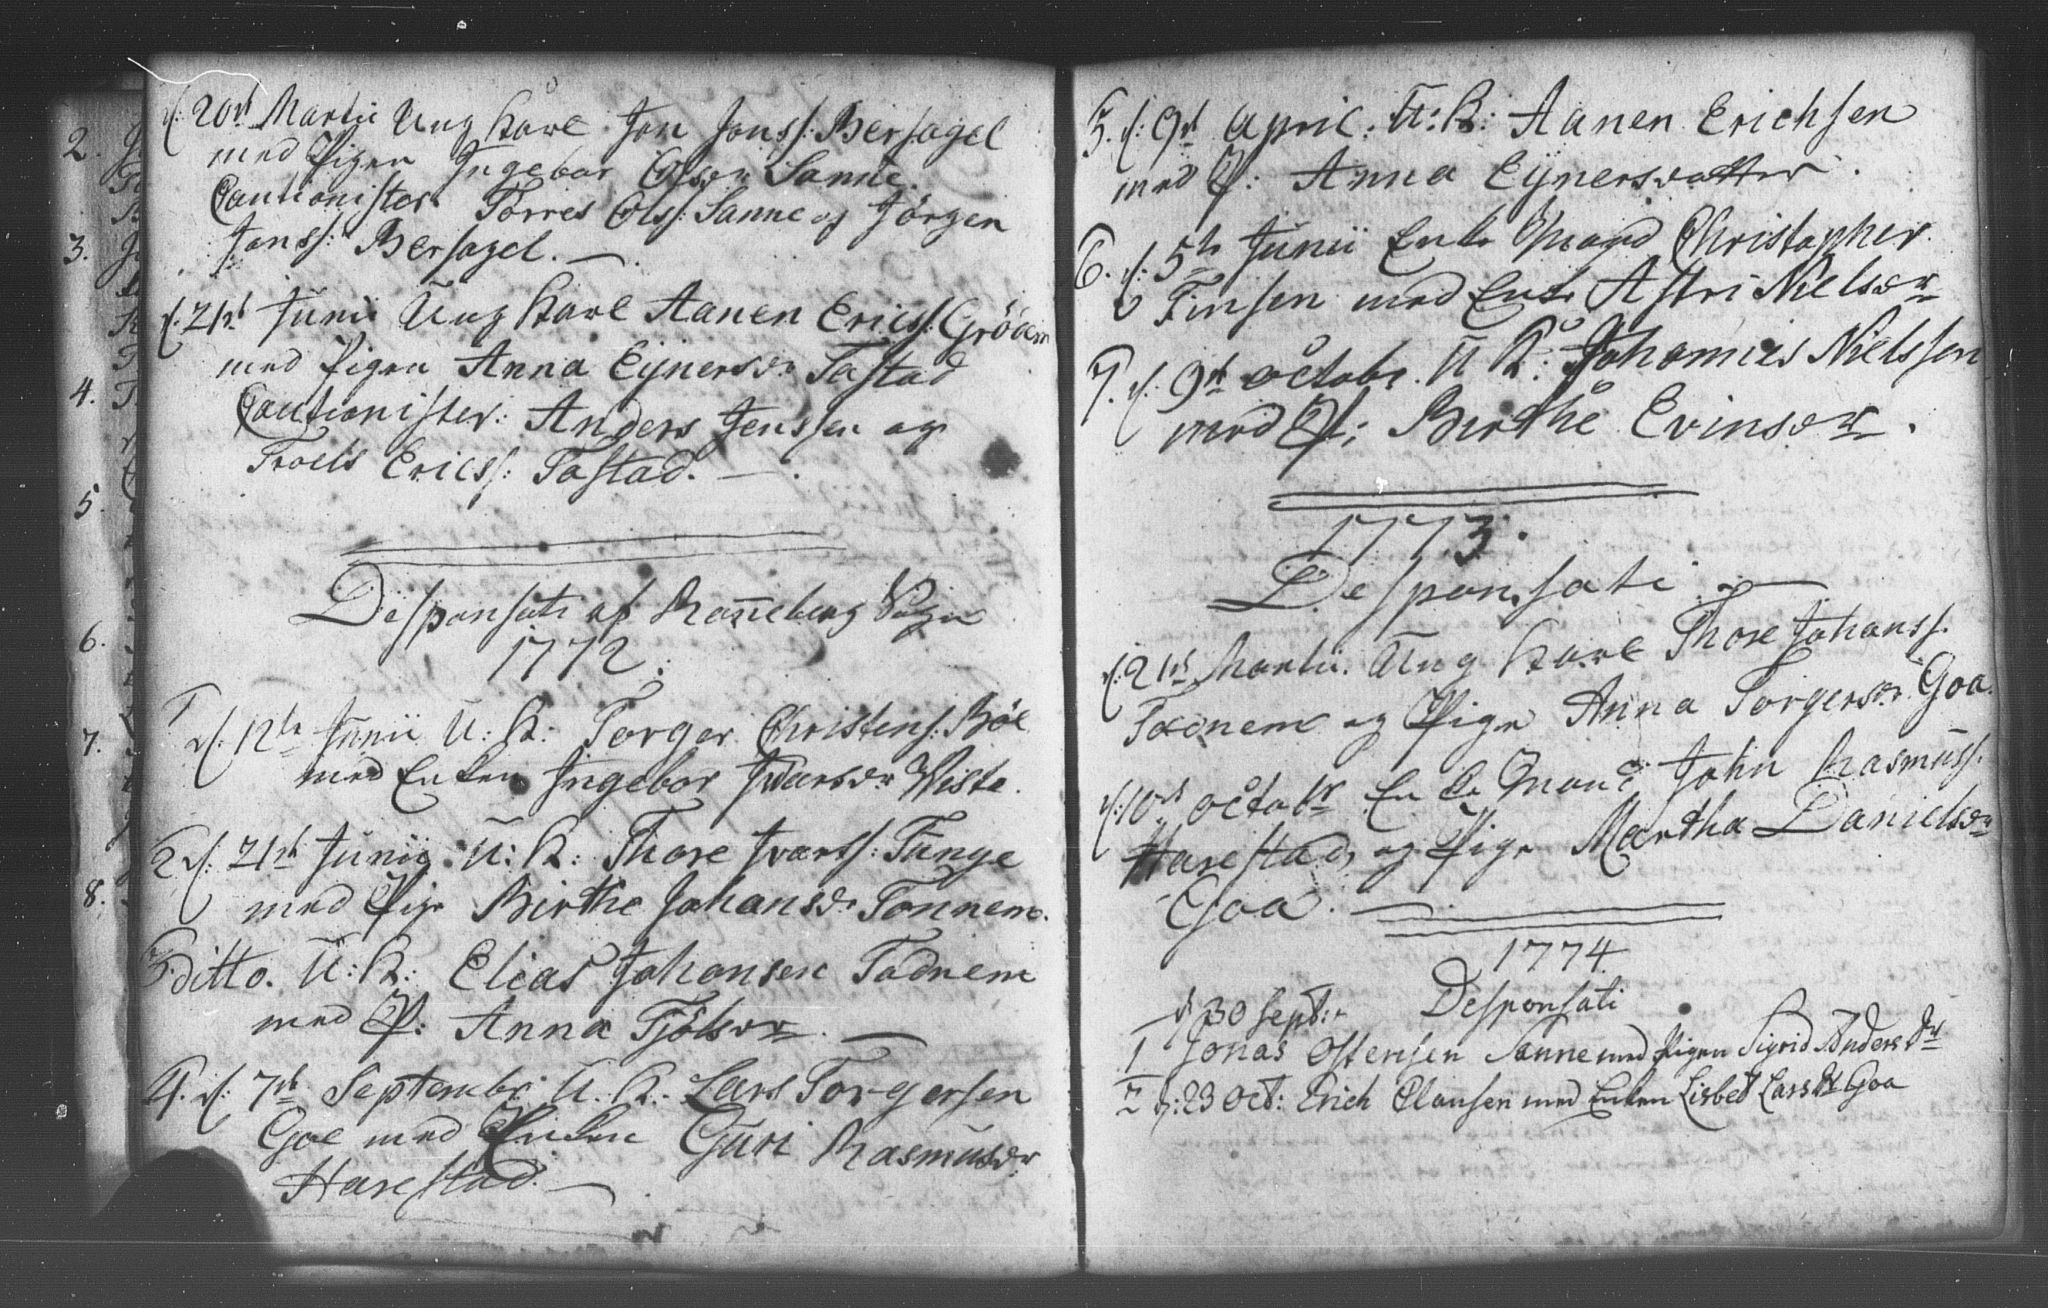 d: 20de Martii Ung Karl Jon Jonss: Bersagel
med Pigen Ingebor Olsdr Sanne.
Cautionister Torres Ols: Sanne og Jörgen
Jonss: Bersagel.
d. 21de Junii Ung Karl Aanen Ericss: Gröem
med Pigen Anna Eijnersdr Tastad
Cautionister: Anders Jenssen og
Troels Ericss: Tastad.
Desponsati af Randeberg Sogn
1772.
1 d. 12te Junii U. K: Torger Christens: Böe
med Enken Ingebor Ivarsdr Viste.
2 d. 21de Junii U: K: Thore Ivarss: Tunge
med Pige Birthe Johansdr Tonnem.
3. ditto. U: K: Elias Johansen Todnem
med P: Anna Tjölsdr.
4. d. 7de Septembr: U. K: Lars Torgersen
Goe med Enken Guri Rasmusdr
Harestad.
2.
3.
4.
5.
6.
7.
8.
5. d. 9de April: U: K: Aanen Erichsen
med P: Anna Eijnersdatter.
6. d. 5te Junii Enke Mand Christopher
Finsen med Enke Astri Nielsdr
7. d. 9de octobr. U K: Johannes Nielssen
med P: Birthe Evinsdr.
1773.
Desponsati
d: 21de Martii. Ung Karl Thore Johanss.
Toonem og Pige Anna Torgersdr Goa.
d: 10de octobr Enke Mand John Rasmuss.
Harestad, og Pige Martha Danielsdr
Goa.
1774.
Desponsati
d 30 Sept:
1 Jonas Ostensen Sanne med Pigen Sigrid Anders Dr
2 d: 23 Oct: Erich Clausen med Enken Lisbet Lars Dr Goa